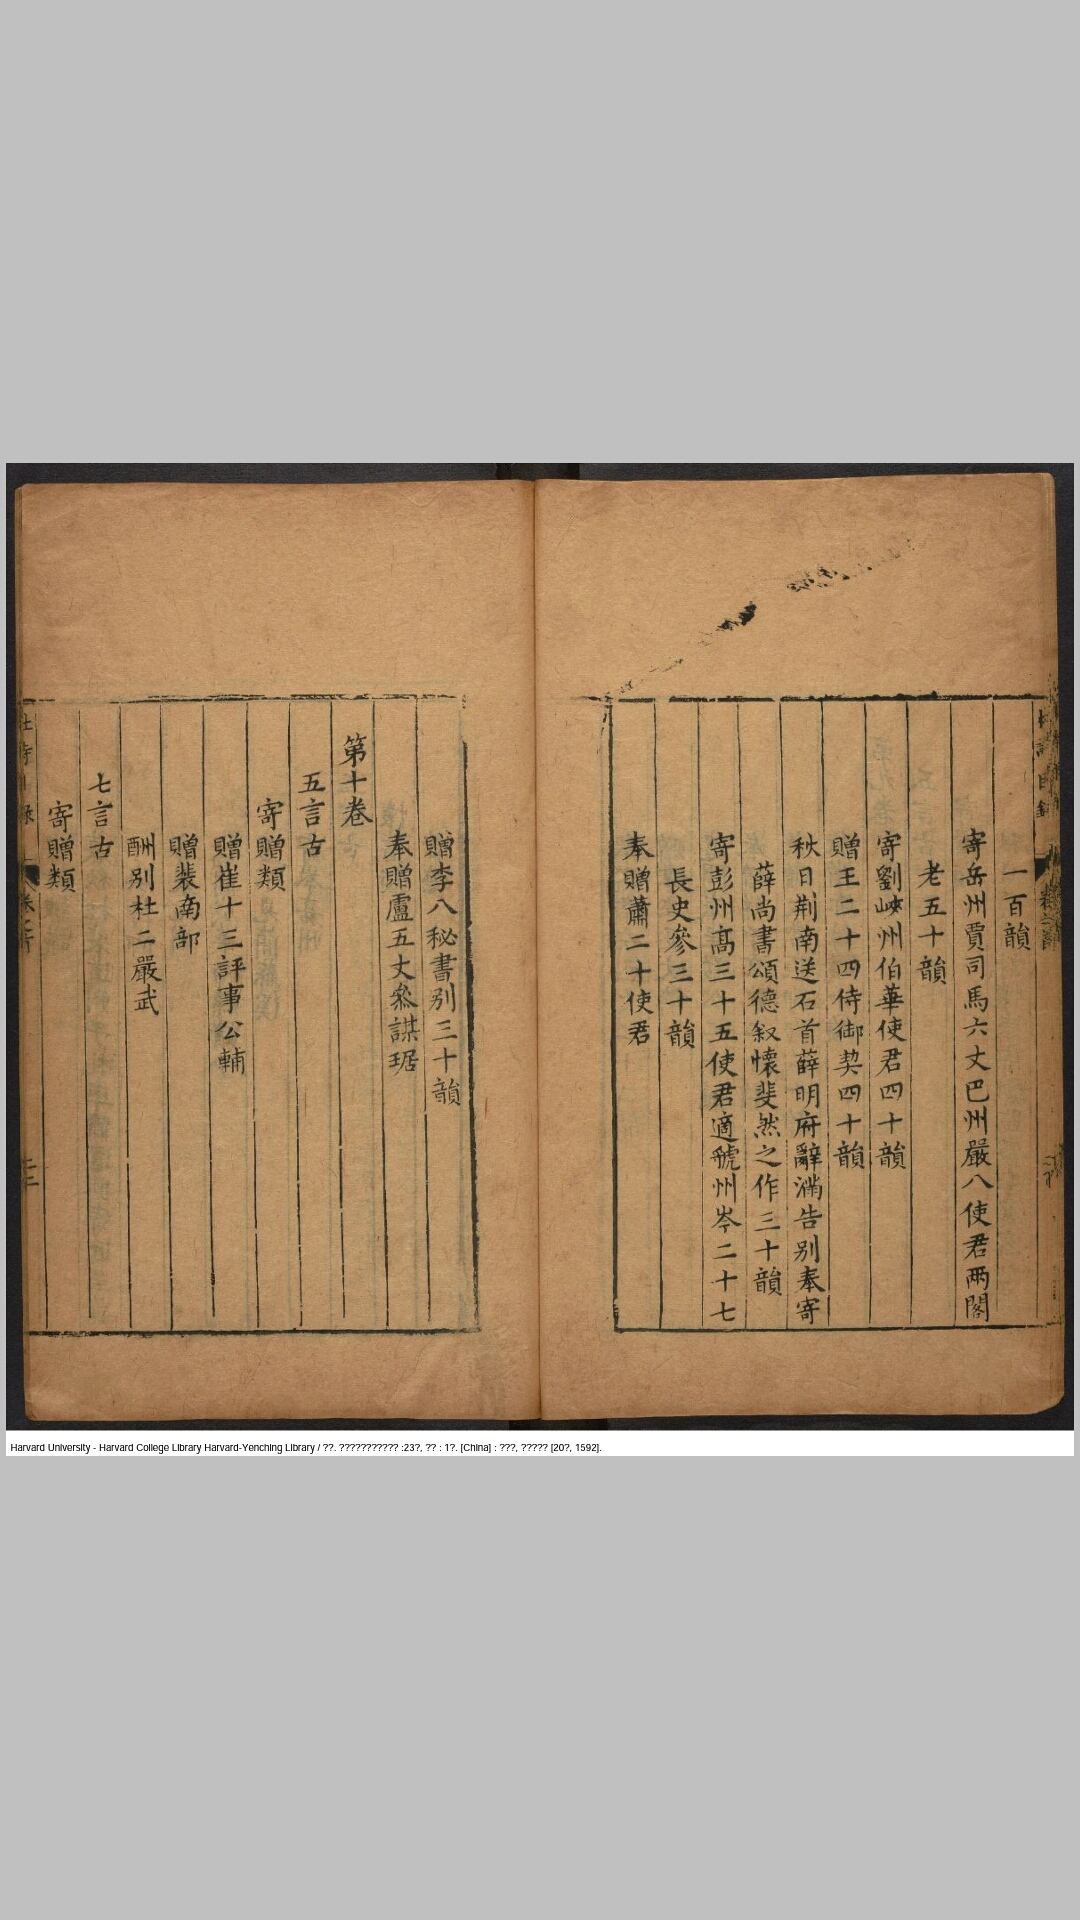 一百韻
寄岳州賈司馬六丈巴州嚴八使君兩閣
老五十韻
寄劉峽州伯華使君四十韻
贈王二十四侍御契四十韻
秋日荆南送石首薛明府辭滿告别奉寄
薛尚書頌德叙懷斐然之作三十韻
寄彭州髙三十五使君適虢州岑二十七
長史參三十韻
奉贈蕭二十使君
贈李八秘書别三十韻
奉贈盧五丈叅謀琚
第十卷
五言古
寄贈類
贈崔十三評事公輔
贈裴南部
酬别杜二嚴武
七言古
寄贈類
Harvard University - Harvard College Library Harvard-Yenching Library / ??. ??????????? :23?, ?? : 1?. [China] : ???, ????? [20?, 1592].